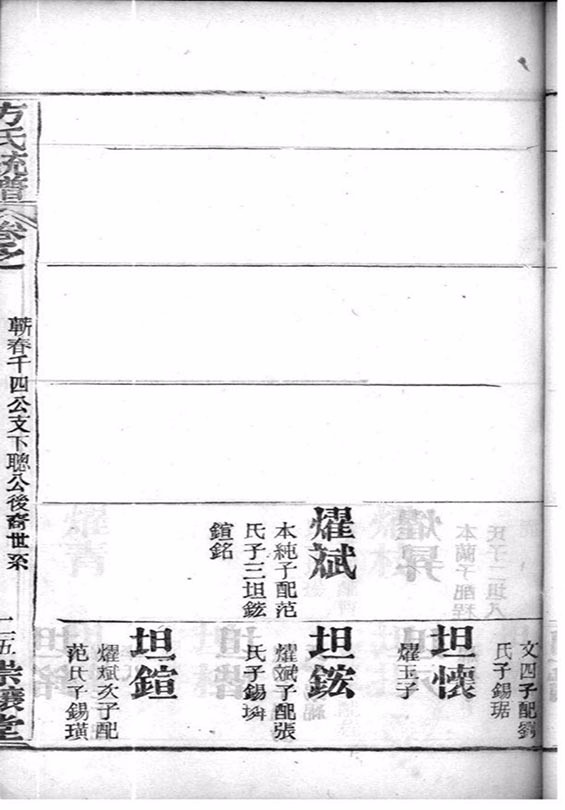 燿斌
本純子配范
氏子三坦鉉
鍹銘
文四子配劉
氏子錫琚
坦懷
燿玉子
坦鉉
燿斌子配張
氏子錫璘
坦鍹
燿斌次子配
范氏子錫璜
方氏統譜
卷之
蘄春千四公支下聰公後裔世系
一五
崇讓堂